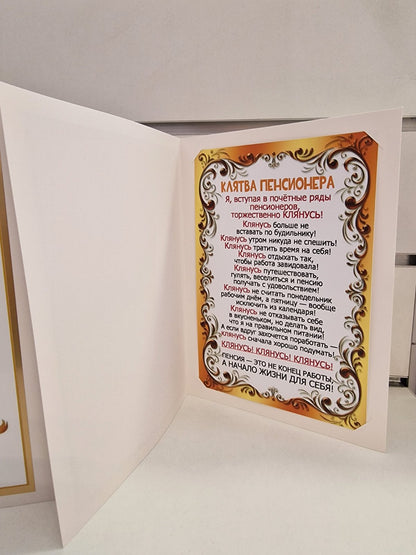 КЛЯТВА ПЕНСИОНЕРА
Я, вступая в почётные ряды
пенсионеров,
торжественно КЛЯНУСЬ!
Клянусь больше не
вставать по будильнику!
Клянусь утром никуда не спешить!
Клянусь тратить время на себя!
Клянусь отдыхать так,
чтобы работа завидовала!
Клянусь путешествовать,
гулять, веселиться и пенсию
получать с удовольствием!
Клянусь не считать понедельник
рабочим днём, а пятницу — вообще
исключить из календаря!
Клянусь не отказывать себе
в вкусненьком, но делать вид,
что я на правильном питании!
А если вдруг захочется поработать —
Клянусь сначала хорошо подумать!
КЛЯНУСЬ! КЛЯНУСЬ! КЛЯНУСЬ!
ПЕНСИЯ — ЭТО НЕ КОНЕЦ РАБОТЫ,
А НАЧАЛО ЖИЗНИ ДЛЯ СЕБЯ!